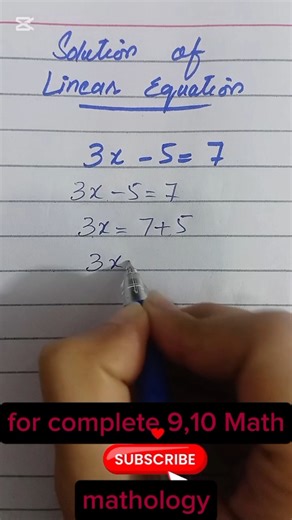 CapCut
Solution of
Linear Equation
3x - 5 = 7
3x - 5 = 7
3x = 7 + 5
3x
for complete 9,10 Math
SUBSCRIBE
mathology